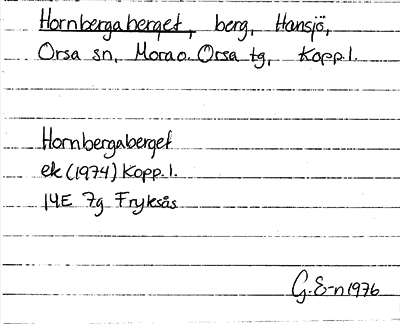 Hornbergaberget, berg, Hansjö,
Orsa sn, Mora o. Orsa tg, Kopp.l.
Hornbergaberget
ek (1974) Kopp.l.
14E 7g Fryksås
G.E-n 1976